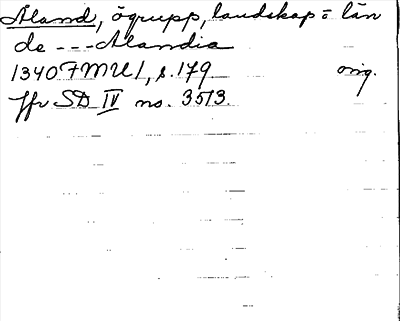 Åland, ögrupp, landskap o län
de --- Alandia
1340 FMU 1, s. 179 orig.
Jfr SD IV no. 3513.